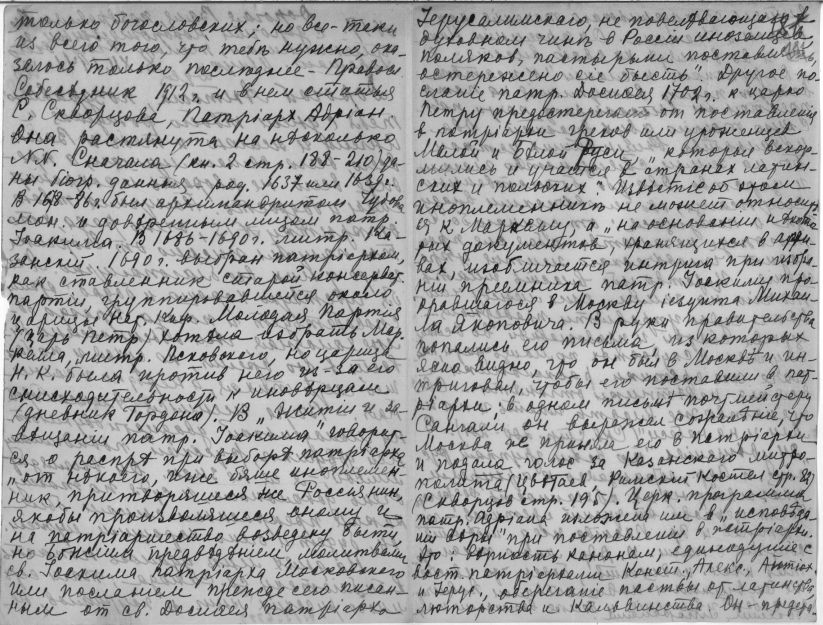 только богословских; но все-таки
из всего того, что тебе нужно, ока-
залось только последнее - Правосл.
Собеседник 1912 г. и в нем статья
Г. Скворцова Патріарх Адріан
Она растянута на несколько
№№. Сначала (кн. 2 стр. 188-210) да-
ны біогр. данныя род. 1637 или 1639 г.
был архимандритом Чудова
мон. и доверенным лицем патр.
Іоакима. В 1686-1690 г. митр. Ка-
занскій 1690 г. выбран патріархом,
как ставленник старой консерват.
партіи, группировавшейся около
царицы Нат. Кир. Молодая партія
(царь Петр) хотела избрать Мар-
кела, митр. Псковского, но царица
Н. К. была против него из-за его
снисходительности к иноверцам
(дневник Гордона). В „Житіи и за-
вещаніи патр. Іоакима" говорит-
ся о распре при выборе патріарха
„от некоего, иже бяше иноплемен-
ник притворяшеся же Россіянин,
якобы произволяшеся оному и
на патріаршество возведену быти,
но Божіим предведеніем молитвами
св. Іоакима патріарха Московского
или посланіем прежде его писан-
ным от св. Досиѳея патріарха
Іерусалимского, не повелевающаго в
духовном чине в Россіи иноземцев
поляков, пастырями поставляти,
остережено сіе бысть". Другое по-
сланіе патр. Досиѳея 1702 г. к царю
Петру предостерегает от поставленія
в патріархи греков или уроженцев
Малой и Белой Руси, „которыя вскор-
мились и учатся в странах латин-
ских и польских". Известіе об этом
иноплеменнике не может относить-
ся к Маркеллу, а „на основаніи некото-
рых документов хранящихся в архи-
вах, изобличается интрига при избра-
ніи преемника патр. Іоакиму про-
кравшагося в Москву іезуита Михаи-
ла Яконовича. В руки правительства
попались его письма, из которых
ясно видно, что он был в Москве и ин-
триговал, чтобы его поставили в пат-
ріархи; в одном письме почтмейстеру
он выражал сожаленіе, что
Москва не приняла его в патріархи
и подала голос за Казанского митро-
полита (Цветаев Римскій Костел стр. 32)
(Скворцов стр. 195). Церк. программа
патр. Адріана изложена им в „исповеда-
ніи веры" при поставленіи в патріархи.
верность канонам, единодушіе с
вост. патріархами Конст., Алекс., Антіох.
и Іерус., обереганіе паствы от латинства
люторства и калвинства. Он - придер-